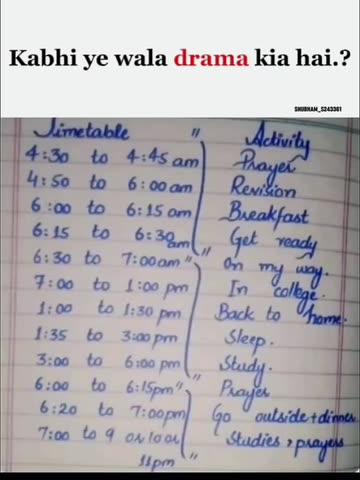 Kabhi ye wala drama kia hai.?
SHUBHAM_S243361
Timetable " Activity
4:30 to 4:45 am Prayer
4:50 to 6:00 am Revision
6:00 to 6:15 am Breakfast
6:15 to 6:30 am " Get ready
6:30 to 7:00 am " On my way.
7:00 to 1:00 pm In college.
1:00 to 1:30 pm Back to home.
1:35 to 3:00 pm Sleep.
3:00 to 6:00 pm " Study.
6:00 to 6:15pm " Prayer
6:20 to 7:00pm Go outside+dinner
7:00 to 9 or 10 or Studies, prayers
11pm "